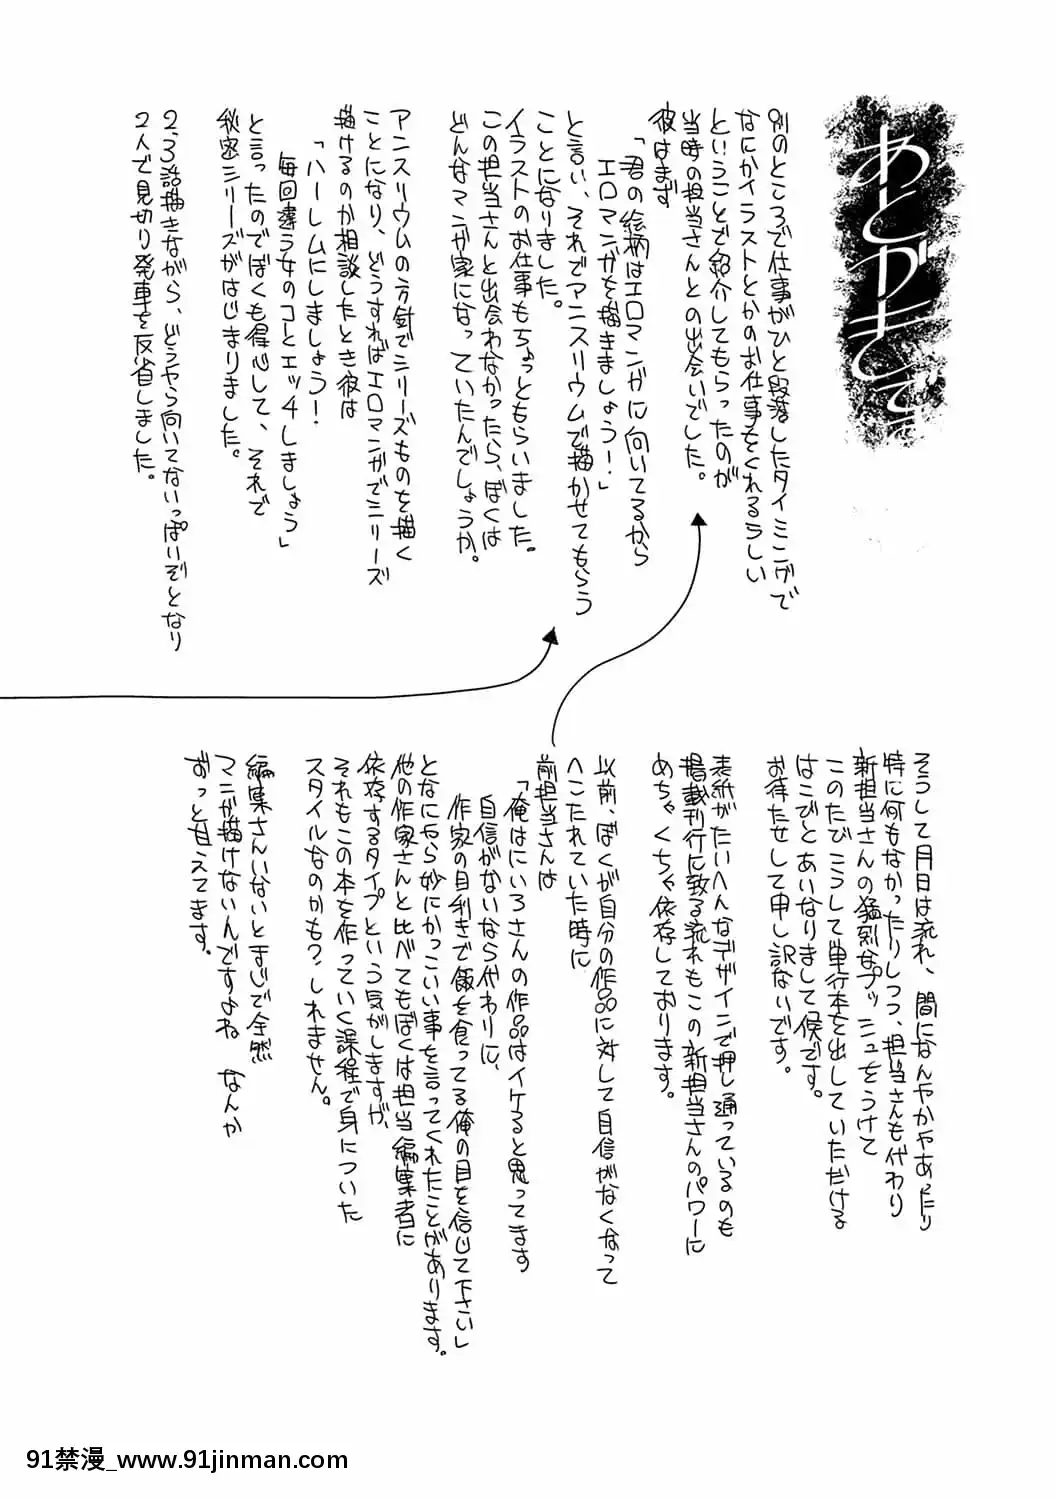 あとがきです
別のところで仕事がひと段落したタイミングで
なにかイラストとかのお仕事をくれるらしい
ということで紹介してもらったのが
当時の担当さんとの出会いでした。
彼はまず
「君の絵柄はエロマンガに向いてるから
エロマンガを描きましょう！」
と言い、それでアンスリウムで描かせてもらう
ことになりました。
イラストのお仕事もちょっともらいました。
この担当さんと出会わなかったら、ぼくは
どんなマンガ家になっていたんでしょうか。
アンスリウムの方針でシリーズものを描く
ことになり、どうすればエロマンガでシリーズ
描けるのか相談したとき彼は
「ハーレムにしましょう！
毎回違う女のコとエッチしましょう」
と言ったのでぼくも得心して、それで
秋家シリーズがはじまりました。
2、3話描きながら、どうやら向いてないっぽいぞとなり
2人で見切り発車を反省しました。
そうして月日は流れ、間になんやかやあったり
特に何もなかったりしつつ、担当さんも代わり
新担当さんの猛烈なプッシュをうけて
このたびこうして単行本を出していただける
はこびとあいなりまして候です。
お待たせして申し訳ないです。
表紙がたいへんなデザインで押し通っているのも
掲載刊行に致る流れもこの新担当さんのパワーに
めちゃくちゃ依存しております。
以前、ぼくが自分の作品に対して自信がなくなって
へこたれていた時に
前担当さんは
「俺はにいろさんの作品はイケると思ってます
自信がないなら代わりに、
作家の目利きで飯を食ってる俺の目を信じて下さい」
となにやら妙にかっこいい事を言ってくれたことがあります。
他の作家さんと比べてもぼくは担当編集者に
依存するタイプという気がしますが、
それもこの本を作っていく課程で身についた
スタイルなのかも？しれません。
編集さんいないとまじで全然
マンガ描けないんですよね なんか
ずっと甘えてます。
91禁漫_www.91jinman.com